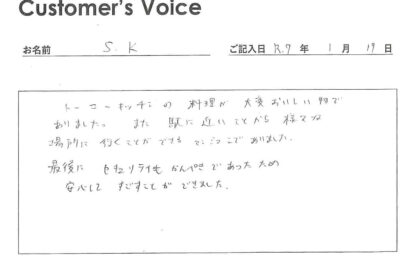 Customer's Voice
お名前 S. K ご記入日 R.7 年 1 月 19 日
トーコーキッチンの 料理が 大変 おいしい物で
ありました。 また 駅に 近いことから 様々な
場所に 行くことができる ところでありました。
最後に セキュリティも かんぺきで あったため
安心して すごすことが できました。